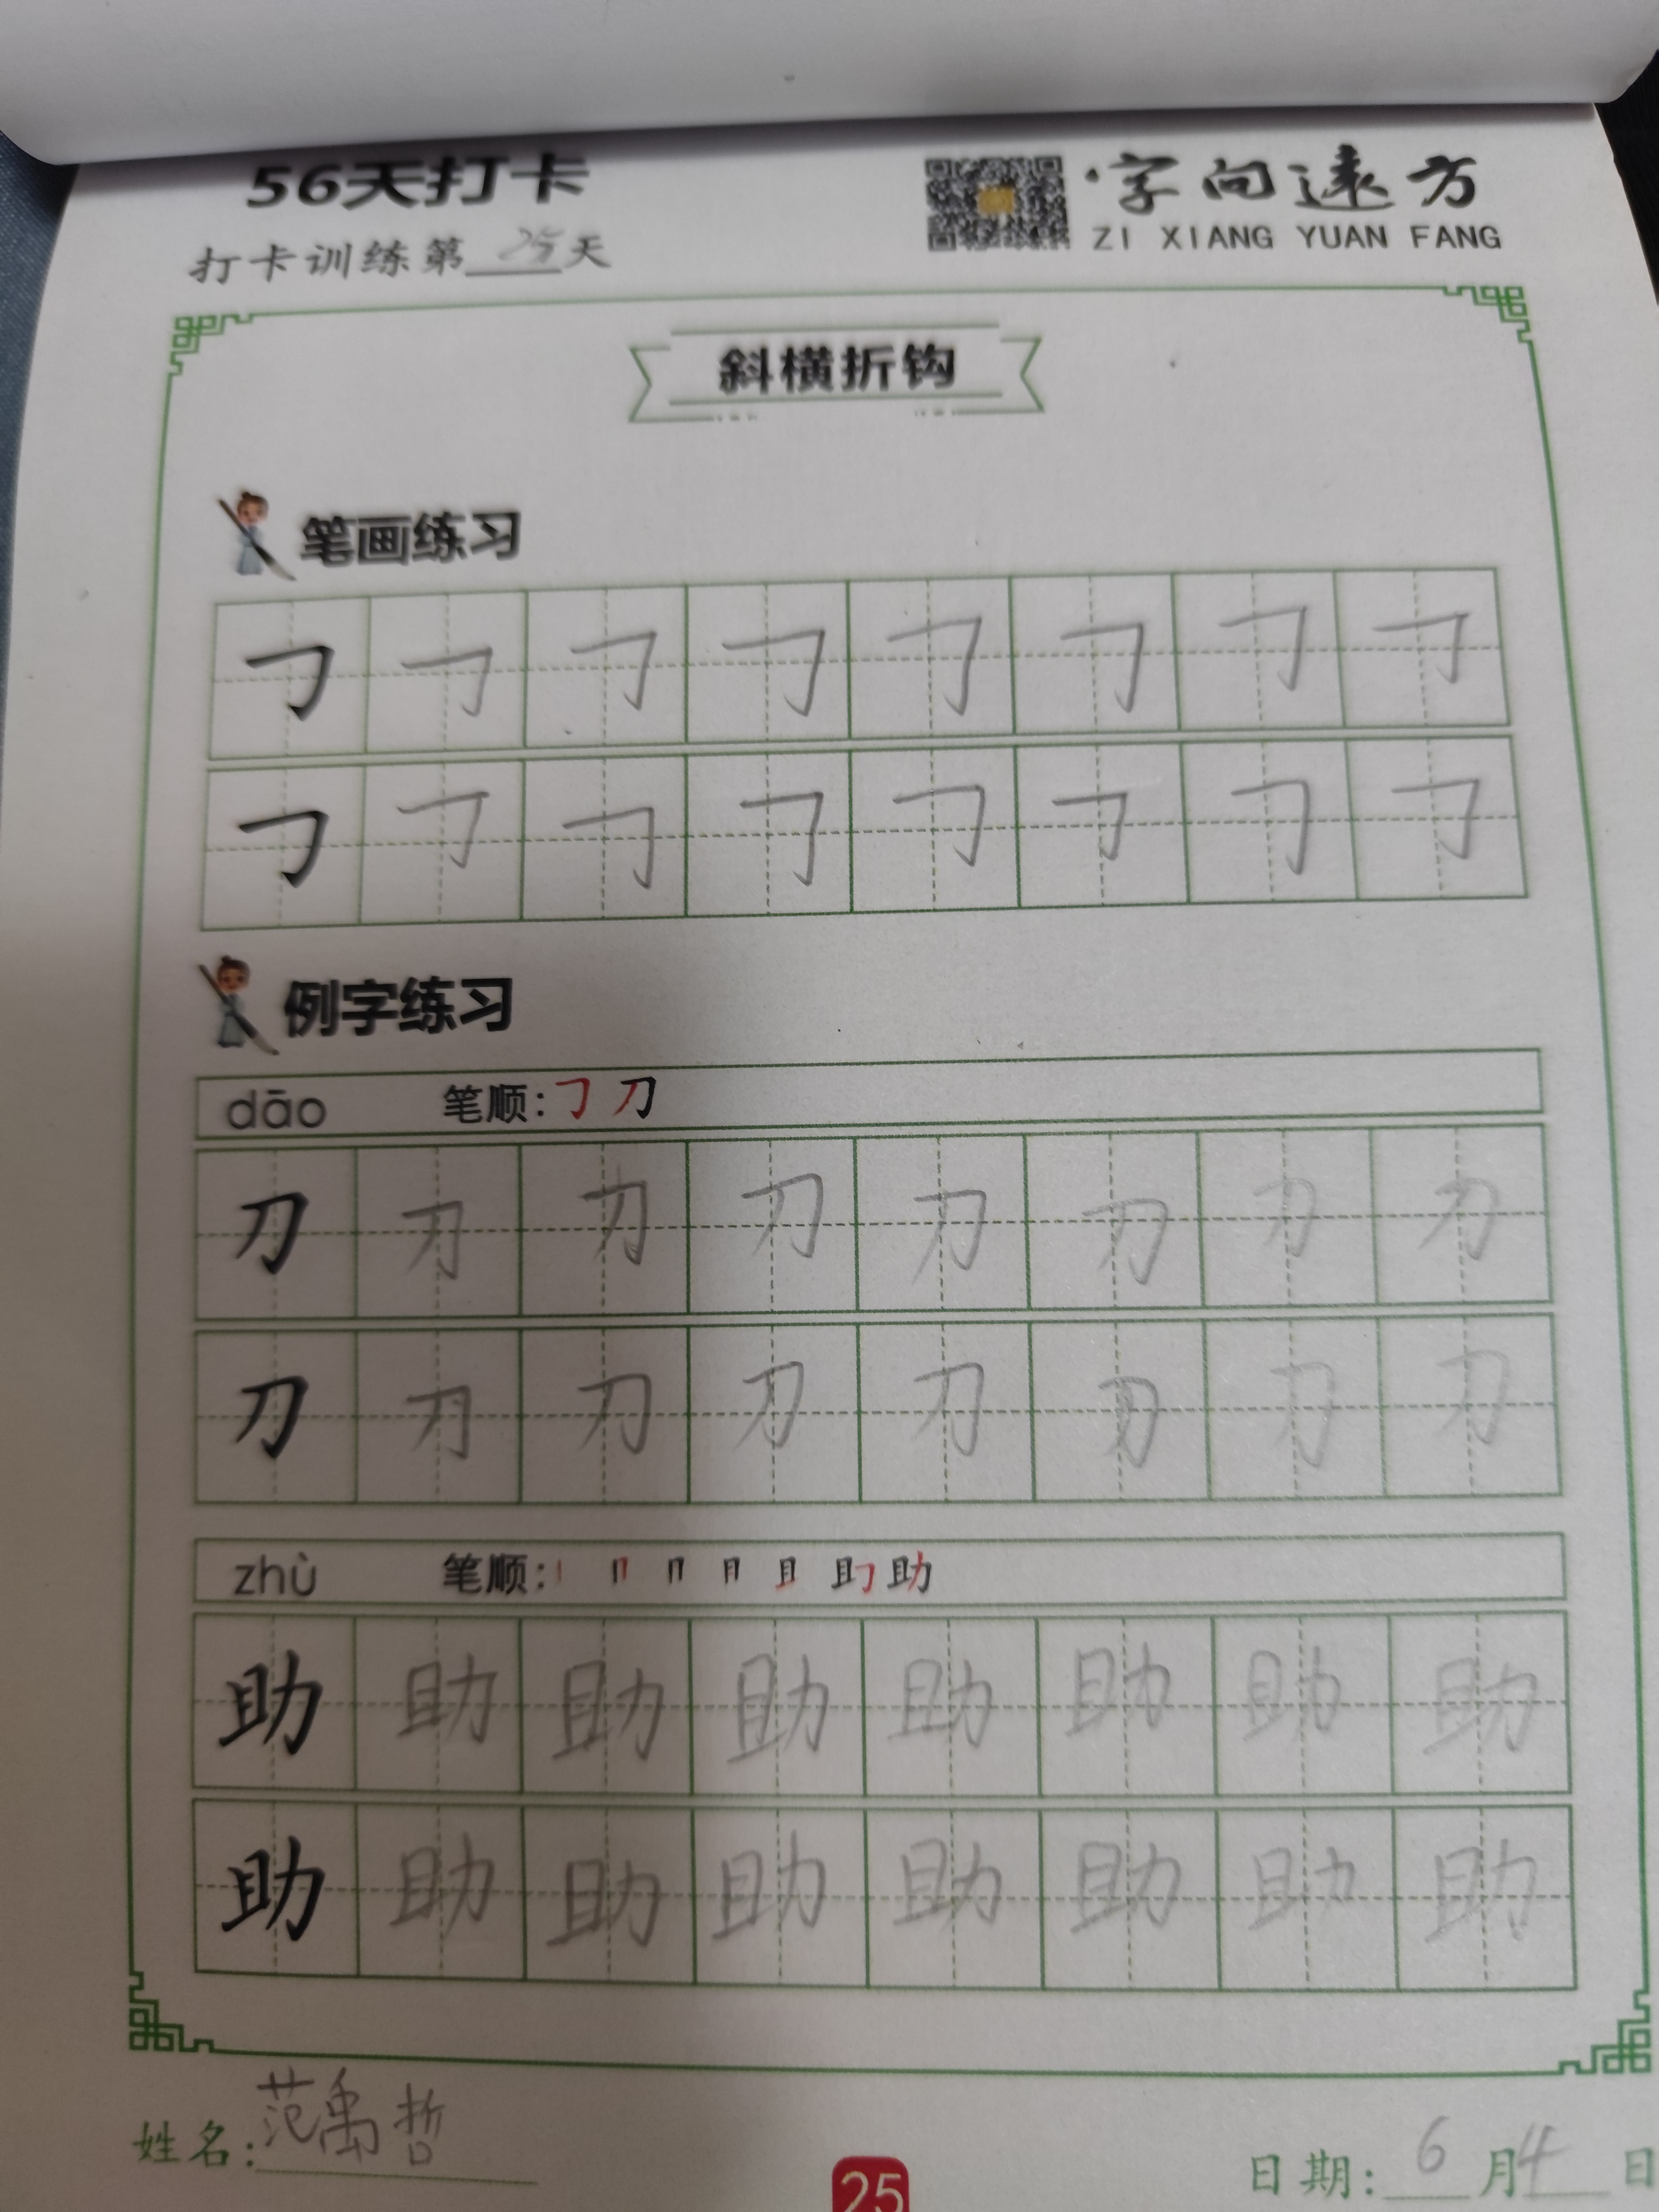 56天打卡
字向远方
ZI XIANG YUAN FANG
打卡训练第25天
斜横折钩
笔画练习
㇆ ㇆ ㇆ ㇆ ㇆ ㇆ ㇆ ㇆
㇆ ㇆ ㇆ ㇆ ㇆ ㇆ ㇆ ㇆
例字练习
dāo 笔顺: ㇆ 刀
刀 刀 刀 刀 刀 刀 刀 刀
刀 刀 刀 刀 刀 刀 刀 刀
zhù 笔顺: 丨 冂 月 且 助
助 助 助 助 助 助 助 助
助 助 助 助 助 助 助 助
姓名: 范禹哲
日期: 6月4日
25